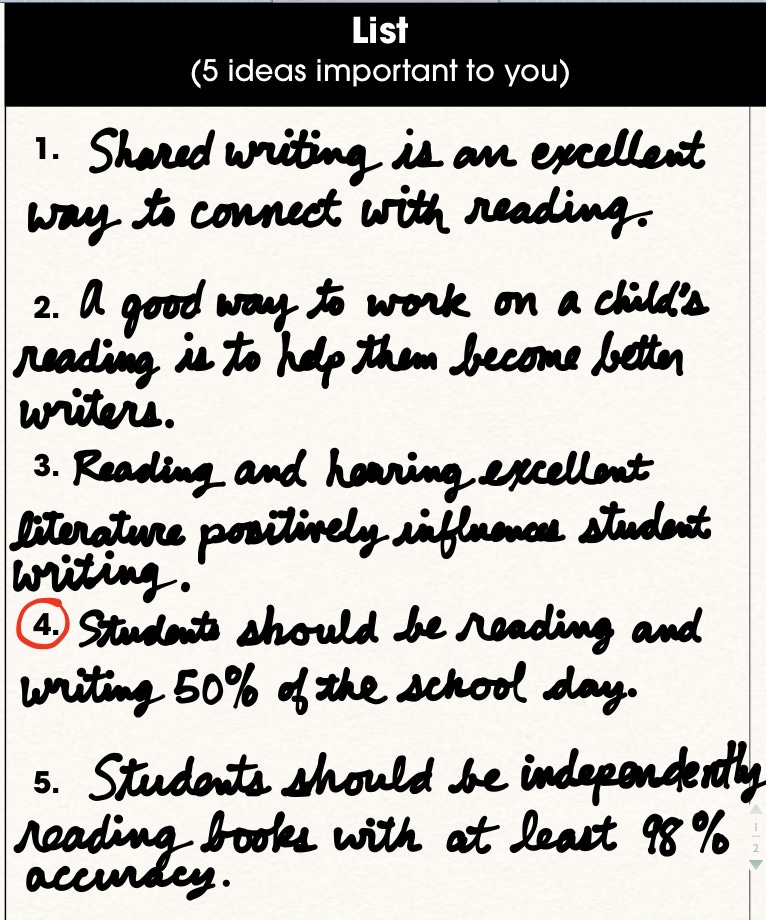 List
(5 ideas important to you)
1. Shared writing is an excellent
way to connect with reading.
2. A good way to work on a child's
reading is to help them become better
writers.
3. Reading and hearing excellent
literature positively influences student
writing.
4. Students should be reading and
writing 50% of the school day.
5. Students should be independently
reading books with at least 98%
accuracy.
1
2